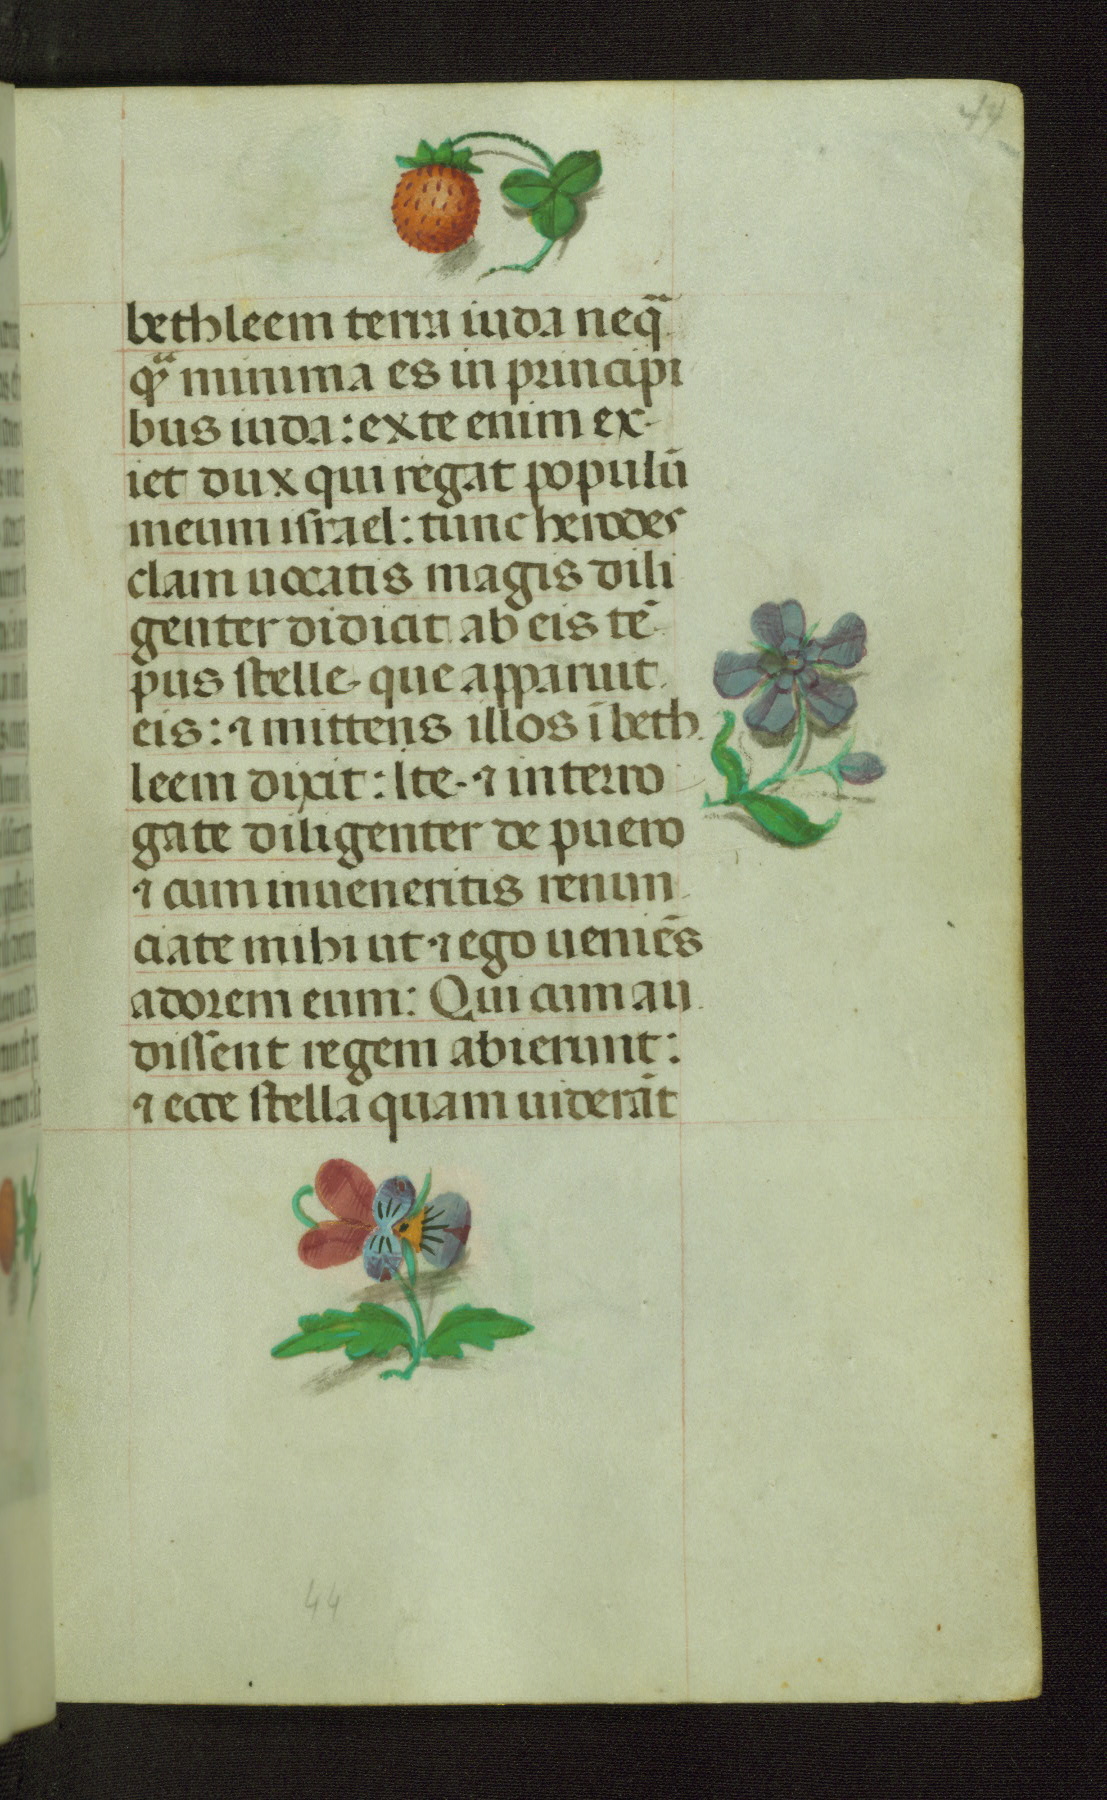 44
bethleem terra iuda neq̃
q̃ minima es in principi
bus iuda: ex te enim ex-
iet dux qui regat populū
meum israel: tunc herodes
clam uocatis magis dili
genter didicit ab eis tē
pus stelle que apparuit
eis: ⁊ mittens illos ī beth
leem dixit: Ite. ⁊ interro
gate diligenter de puero
⁊ cum inueneritis renun
ciate mihi ut ⁊ ego ueniēs
adorem eum: Qui cum au
dissent regem abierunt:
⁊ ecce stella quam uiderāt
44